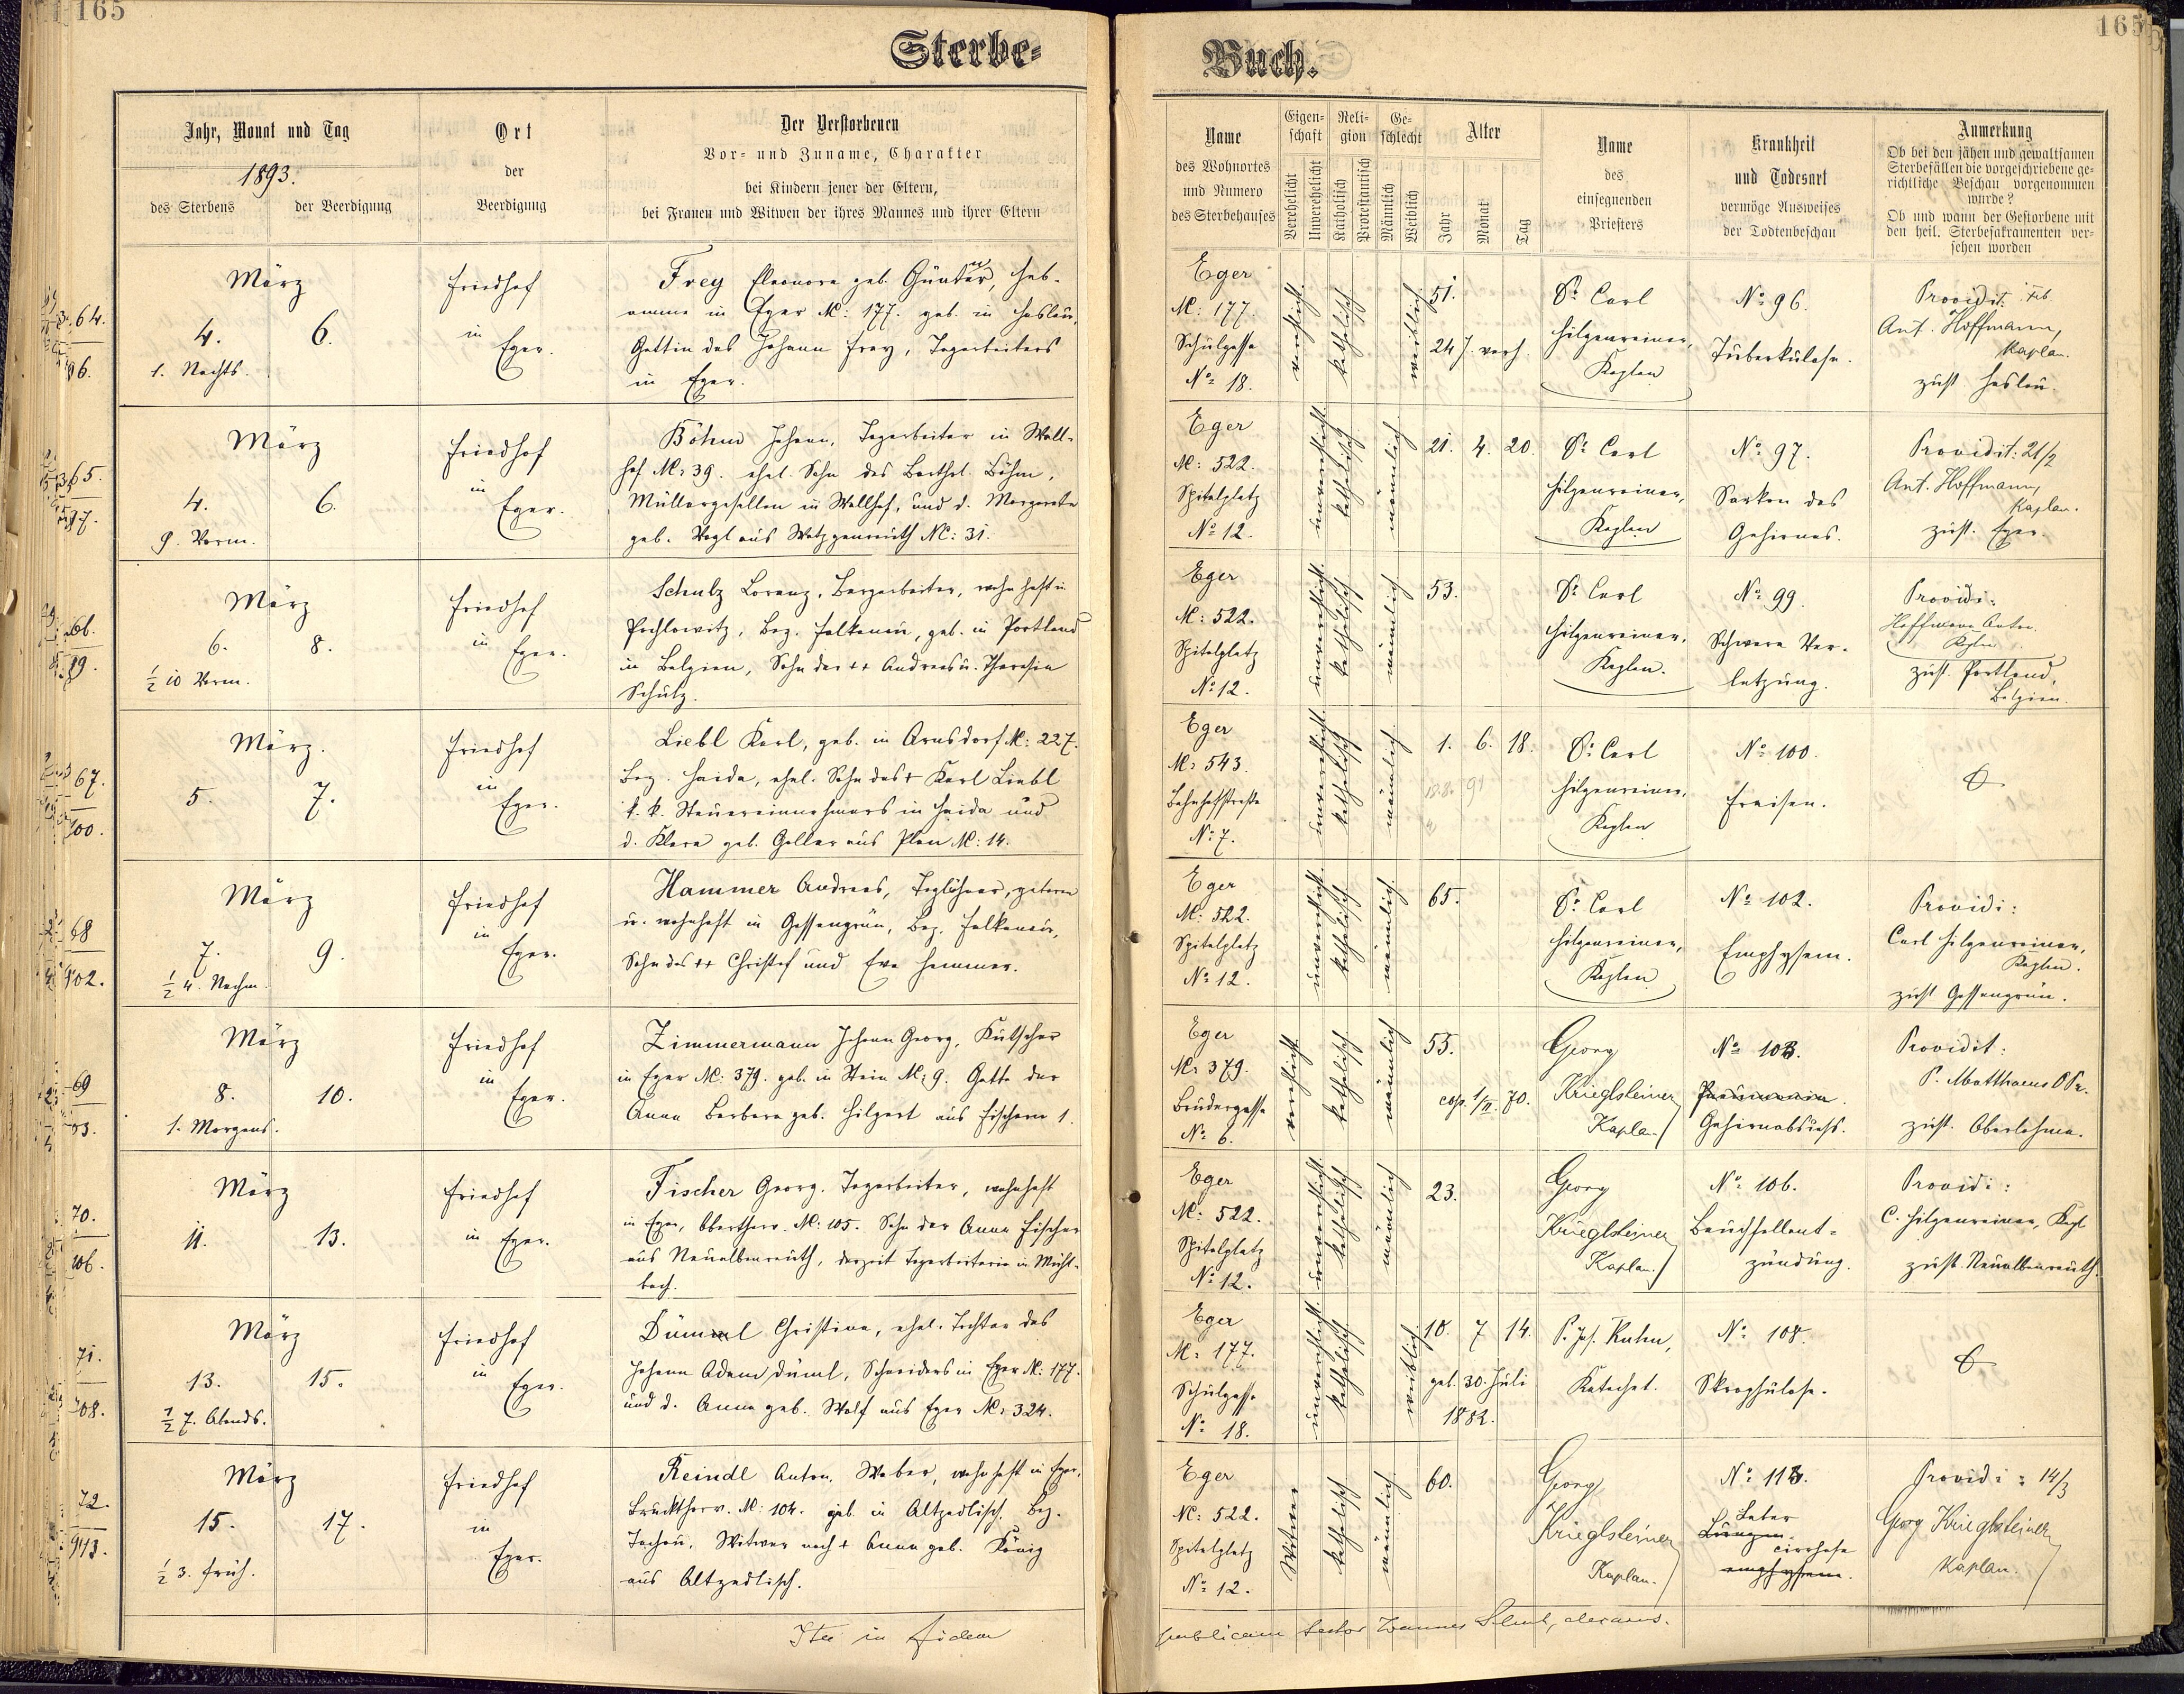 165
Sterbe-
Buch.
165
Jahr, Monat und Tag
1893.
des Sterbens
der Beerdigung
Ort
der
Beerdigung
Der Verstorbenen
Vor- und Zuname, Charakter
bei Kindern jener der Eltern,
bei Frauen und Witwen der ihres Mannes und ihrer Eltern
Name
des Wohnortes
und Numero
des Sterbehauses
Eigen-
schaft
Verehelicht
Unverehelicht
Reli-
gion
Katholisch
Protestantisch
Ge-
schlecht
Männlich
Weiblich
Alter
Jahr
Monat
Tag
Name
des
einsegnenden
Priesters
Krankheit
und Todesart
vermöge Ausweises
der Todtenbeschau
Anmerkung
Ob bei den jähen und gewaltsamen
Sterbefällen die vorgeschriebene ge-
richtliche Beschau vorgenommen
wurde?
Ob und wann der Gestorbene mit
den heil. Sterbesakramenten ver-
sehen worden
64.
96.
März
4. 6.
1. Nachts.
Friedhof
in
Eger.
Frey Eleonora geb. Günter, Heb-
amme in Eger NC: 177. geb. in Haslau,
Gattin des Johann Frey, Tagarbeiters
in Eger.
Eger
NC: 177.
Schulgasse
No 18.
verehlicht
katholisch
weiblich
51.
24 J. verh.
Dr. Carl
Hilgenreiner,
Kaplan
No 96.
Tuberkulose.
Providit: Feb.
Ant. Hoffmann,
Kaplan.
zust. Haslau.
65.
97.
März
4. 6.
9. Vorm.
Friedhof
in
Eger.
Böhm Johann, Tagarbeiter in Wall-
hof NC: 39. ehel. Sohn des Barthol. Böhm,
Müllergesellen in Wallhof, und d. Margareta
geb. Vogl aus Watzgenreuth NC: 31.
Eger
NC: 522.
Spitalplatz
No 12.
unverehlicht
katholisch
männlich
21. 4. 20.
Dr. Carl
Hilgenreiner,
Kaplan
No 97.
Sarkom des
Gehirnes.
Providit: 21/2
Ant. Hoffmann,
Kaplan.
zust. Eger.
66.
99.
März
6. 8.
1/2 10 Vorm.
Friedhof
in
Eger.
Schulz Lorenz, Bergarbeiter, wohnhaft in
Pochlowitz, Bez. Falkenau, geb. in Portland
in Belgien, Sohn der ++ Andreas u. Theresia
Schulz.
Eger
NC: 522.
Spitalplatz
No 12.
unverehlicht
katholisch
männlich
53.
Dr. Carl
Hilgenreiner,
Kaplan.
No 99.
Schwere Ver-
letzung.
Providi:
Hoffmann Anton.
Kaplan
zust. Portland,
Belgien.
67.
100.
März.
5. 7.
Friedhof
in
Eger.
Liebl Karl, geb. in Arnsdorf NC: 227.
Bez. Haida, ehel. Sohn des + Karl Liebl
k. k. Steuereinnehmers in Haida und
d. Klara geb. Geller aus Plan NC: 14.
Eger
NC: 543.
Bahnhofstraße
No 7.
unverehlicht
katholisch
männlich
1. 6. 18.
Dr. Carl
Hilgenreiner,
Kaplan
No 100.
Fraisen.
68
102.
März
7. 9.
1/2 4. Nachm.
Friedhof
in
Eger.
Hammer Andreas, Taglöhner, geboren
u. wohnhaft in Gossengrün, Bez. Falkenau,
Sohn des ++ Christof und Eva Hammer.
Eger
NC: 522.
Spitalplatz
No 12.
unverehlicht
katholisch
männlich
65.
Dr. Carl
Hilgenreiner,
Kaplan
No 102.
Emphysem.
Providi:
Carl Hilgenreiner,
Kaplan.
zust Gossengrün.
69
März
8. 10.
1. Morgens.
Friedhof
in
Eger.
Zimmermann Johann Georg, Kutscher
in Eger NC: 379. geb. in Stein NC: 9. Gatte der
Anna Barbara geb. Hilgart aus Fischern 1.
Eger
NC: 379.
Brudergasse
No 6.
verehlicht
katholisch
männlich
55.
cop. 1/II. 70.
Georg
Krieglsteiner
Kaplan
No 103.
Pneumonie.
Gehirnabscess.
Providit:
P. Matthaeus O Pr.
zust. Oberlohma.
70.
106.
März
11. 13.
Friedhof
in Eger.
Fischer Georg, Tagarbeiter, wohnhaft
in Eger, Oberthorv. NC: 105. Sohn der Anna Fischer
aus Neualbenreuth, derzeit Tagarbeiterin in Mühl-
bach.
Eger
NC: 522.
Spitalplatz
No 12.
unverehlicht
katholisch
männlich
23.
Georg
Krieglsteiner
Kaplan.
No 106.
Bauchfellent-
zündung.
Providi:
C. Hilgenreiner, Kapl
zust. Neualbenreuth.
71.
108.
März
13. 15.
1/2 7. Abends.
Friedhof
in
Eger.
Düml Christina, ehel. Tochter des
Johann Adam Düml, Schneiders in Eger NC: 177.
und d. Anna geb. Wolf aus Eger NC: 324.
Eger
NC: 177.
Schulgasse
No 18.
unverehlicht
katholisch
weiblich
10. 7 14.
geb. 30. Juli
1882.
P. Jos. Kuhn,
Katechet.
No 108.
Skrophulose.
72.
113.
März
15. 17.
1/2 3. früh.
Friedhof
in
Eger.
Reindl Anton, Weber, wohnhaft in Eger,
Bruckthorv. NC: 104. geb. in Altzedlisch, Bez.
Tachau, Witwer nach + Anna geb. König
aus Altzedlisch.
Eger
NC: 522.
Spitalplatz
No 12.
Witwer
katholisch
männlich
60.
Georg
Krieglsteiner
Kaplan.
No 113.
Leber
Lungen-
cirrhose
emphysem.
Providi: 14/3
Georg Krieglsteiner
Kaplan.
Ita in fidem
publicam testor Joannes